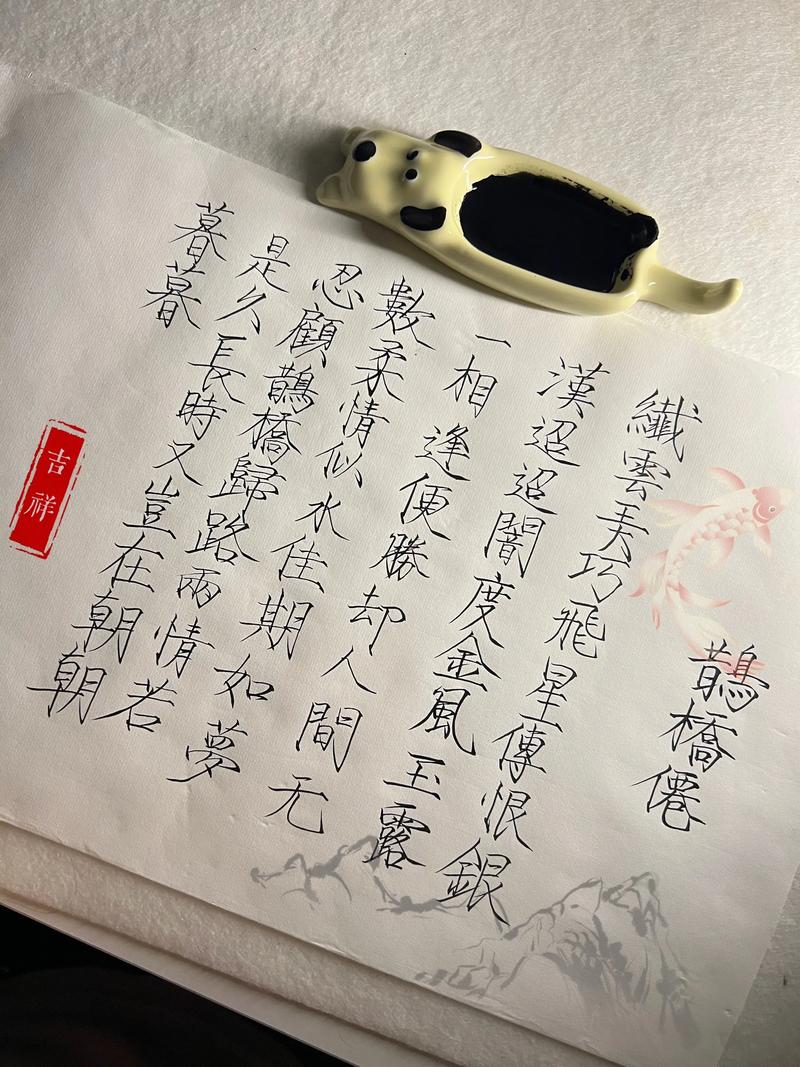 鵲橋僊
纖雲弄巧飛星傳恨銀
漢迢迢闇度金風玉露
一相逢便勝却人間无
數柔情似水佳期如夢
忍顧鵲橋歸路兩情若
是久長時又豈在朝朝
暮暮
吉祥